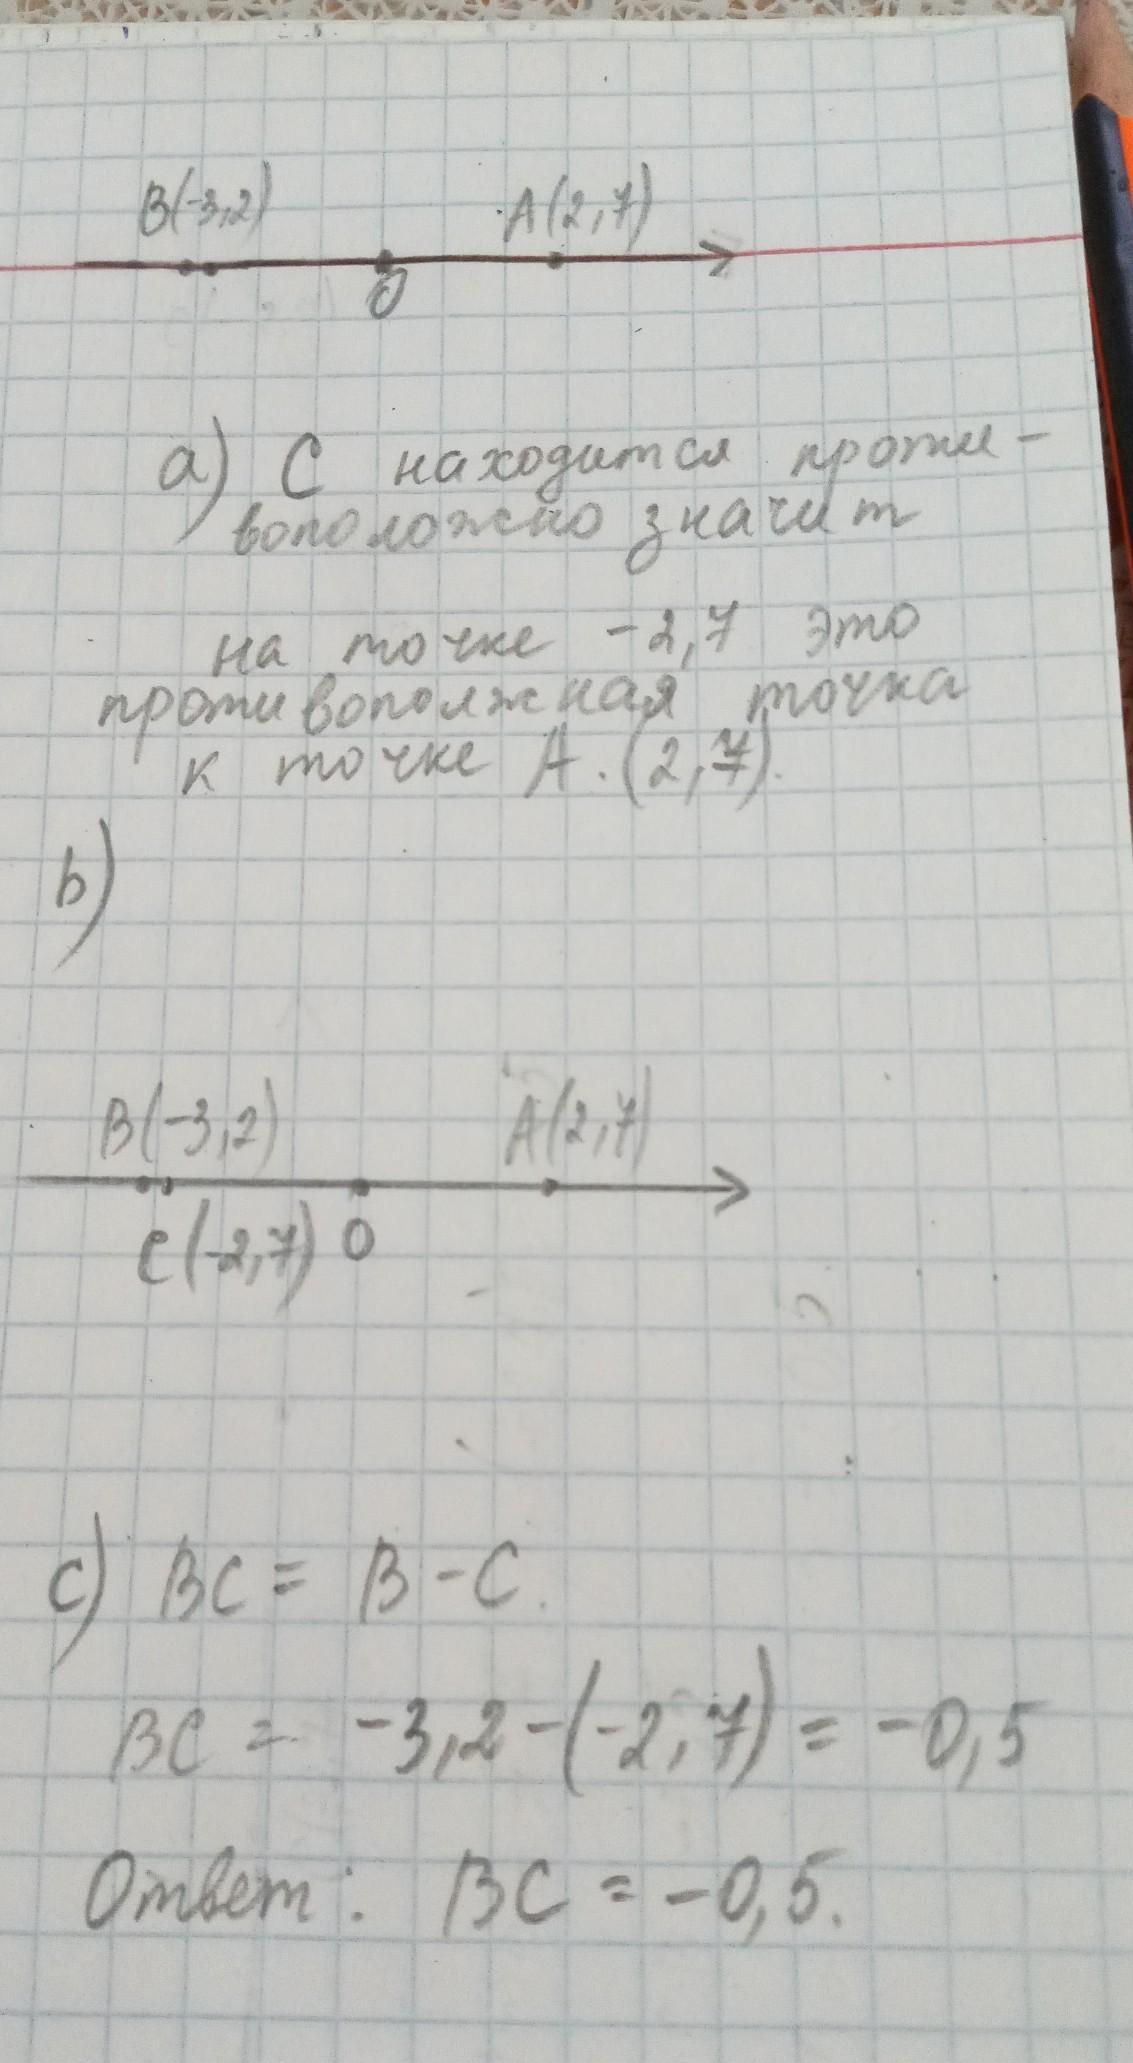 B(-3,2) A(2,7)
O
a) C находится проти-
воположно значит
на точке -2,7 это
противополжная точка
к точке A.(2,7).
b)
B(-3,2) A(2,7)
C(-2,7) O
c) BC = B - C.
BC = -3,2-(-2,7) = -0,5
Ответ: BC = -0,5.